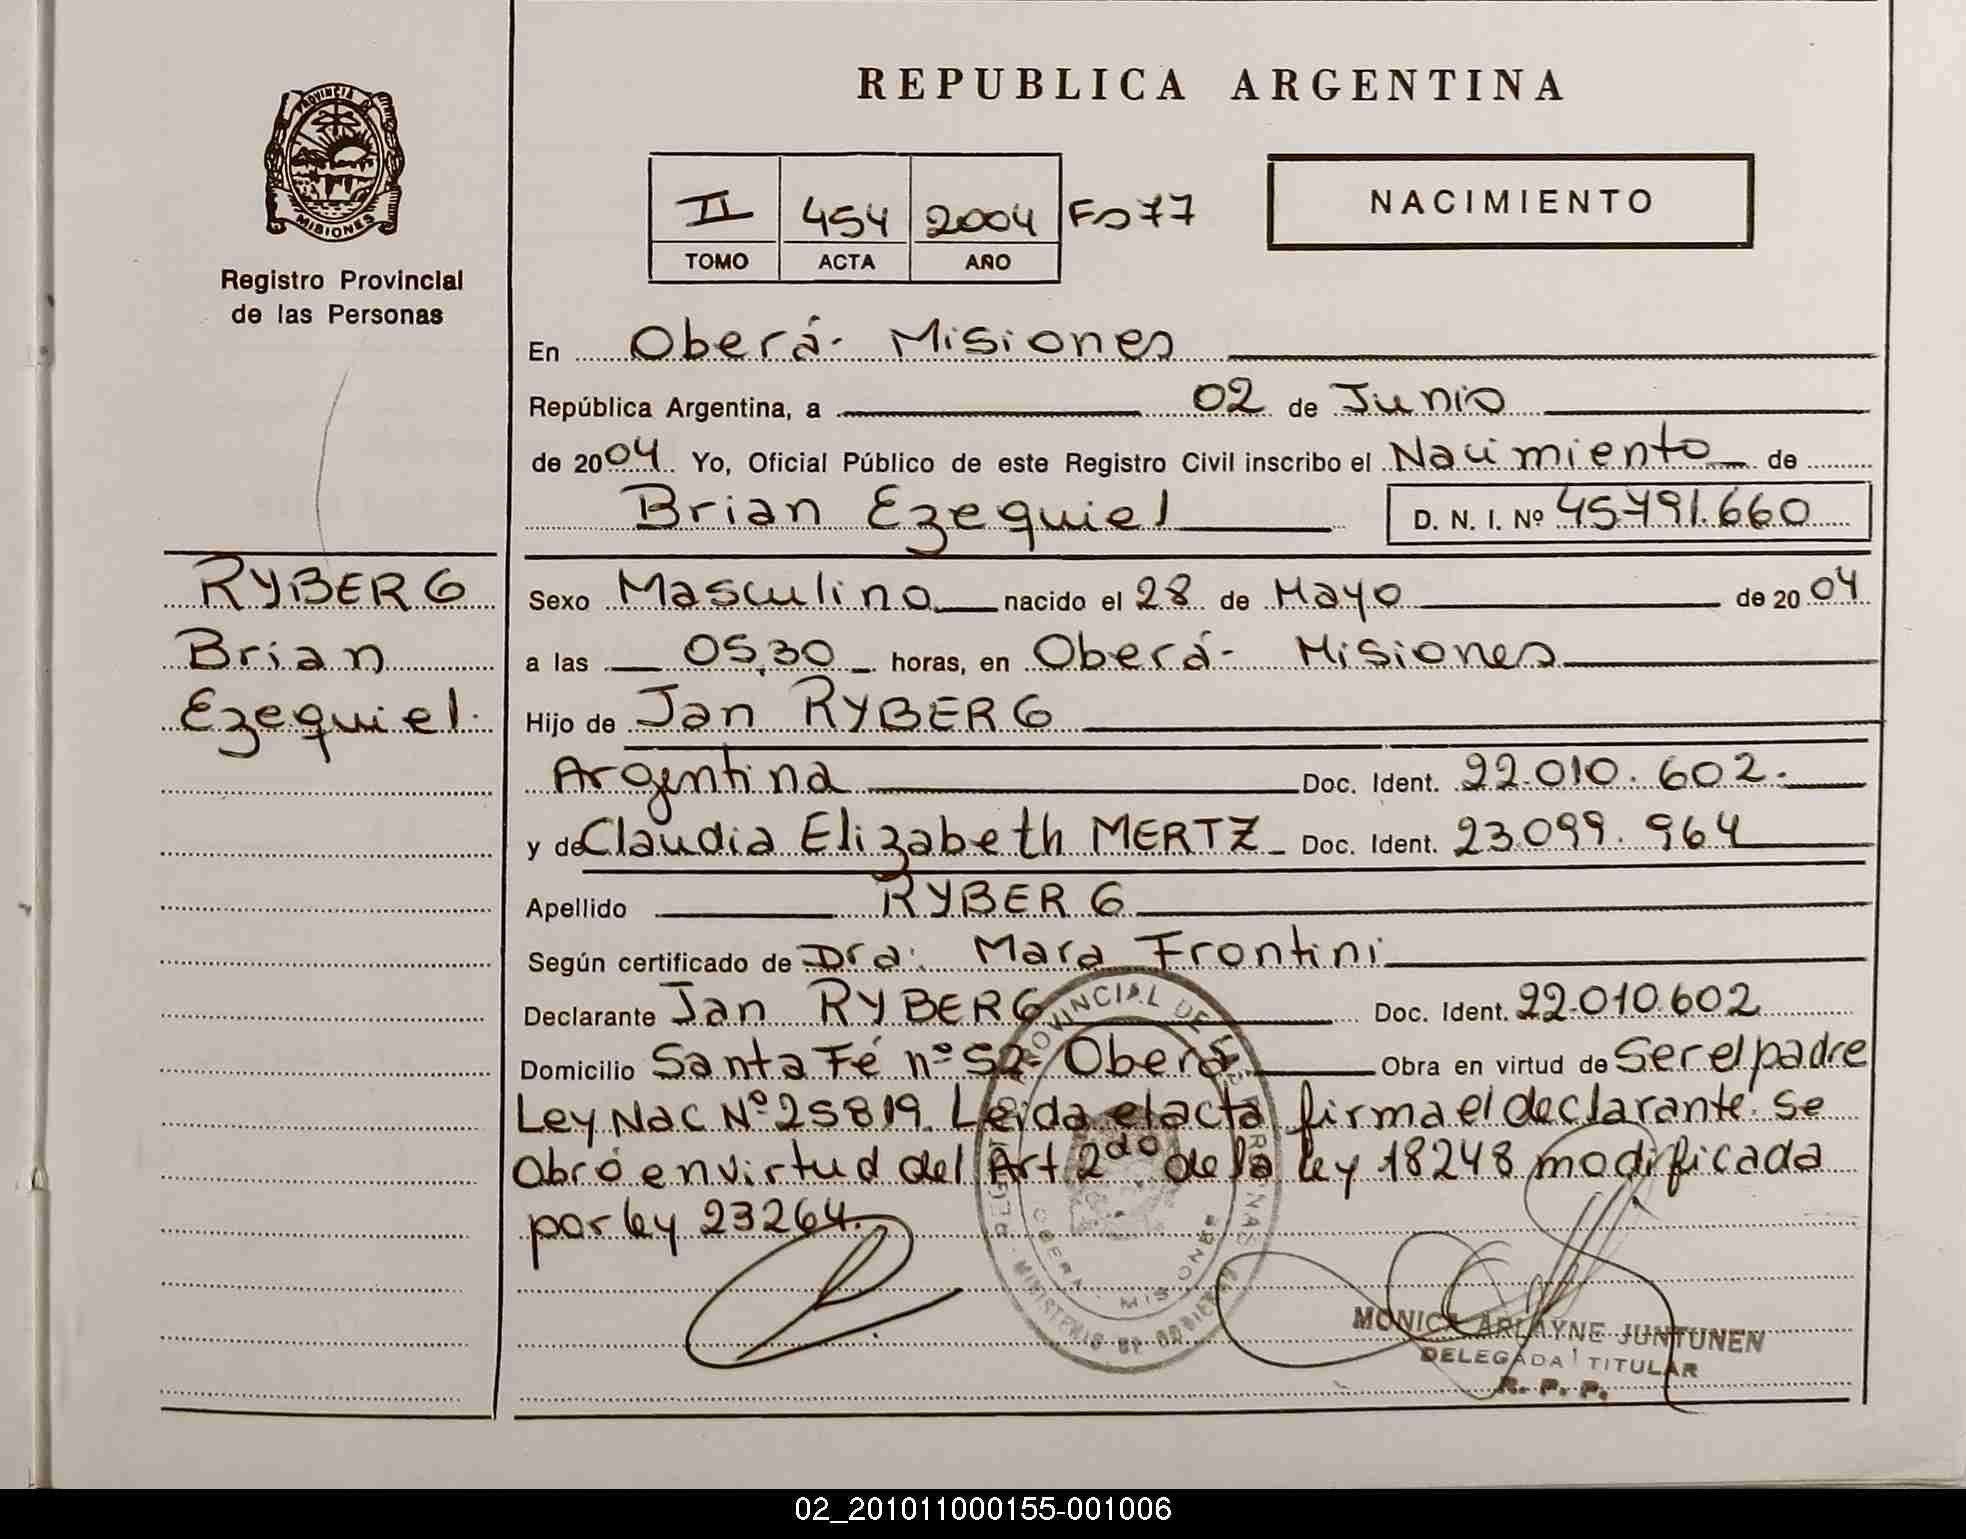 REPUBLICA ARGENTINA
PROVINCIA DE MISIONES
Registro Provincial
de las Personas
II 454 2004 Fo 77
TOMO ACTA AÑO
NACIMIENTO
En Oberá - Misiones
República Argentina, a 02 de Junio
de 2004 Yo, Oficial Público de este Registro Civil inscribo el Nacimiento de
Brian Ezequiel D. N. I. Nº 45.491.660
RYBERG
Brian
Ezequiel
Sexo Masculino nacido el 28 de Mayo de 2004
a las 05,30 horas, en Oberá - Misiones
Hijo de Jan RYBERG
Argentina Doc. Ident. 22.010.602.
y de Claudia Elizabeth MERTZ Doc. Ident. 23.099.964
Apellido RYBERG
Según certificado de Dra. Mara Frontini
Declarante Jan RYBERG Doc. Ident. 22.010.602
Domicilio Santa Fé nº 52 - Oberá Obra en virtud de Ser el padre
Ley Nac Nº 25819. Leida el acta firma el declarante. Se
Obró en virtud del Art 2do de la ley 18248 modificada
por ley 23264.
MONICA ARLAYNE JUNTUNEN
DELEGADA TITULAR
R. P. P.
02_201011000155-001006